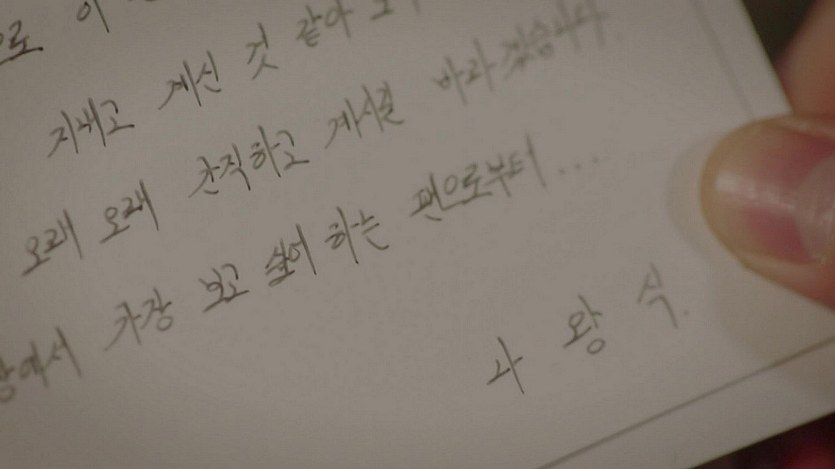 으로 이
지내고 계신 것 같아
오래 오래 간직하고 계시길 바라겠습니다.
에서 가장 보고 싶어 하는 팬으로부터...
나 왕 식.